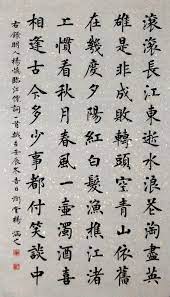 滾滾長江東逝水浪花淘盡英
雄是非成敗轉頭空青山依舊
在幾度夕陽紅白髮漁樵江渚
上慣看秋月春風一壺濁酒喜
相逢古今多少事都付笑談中
右録明人楊慎臨江僊詞一首 壬辰冬吉日